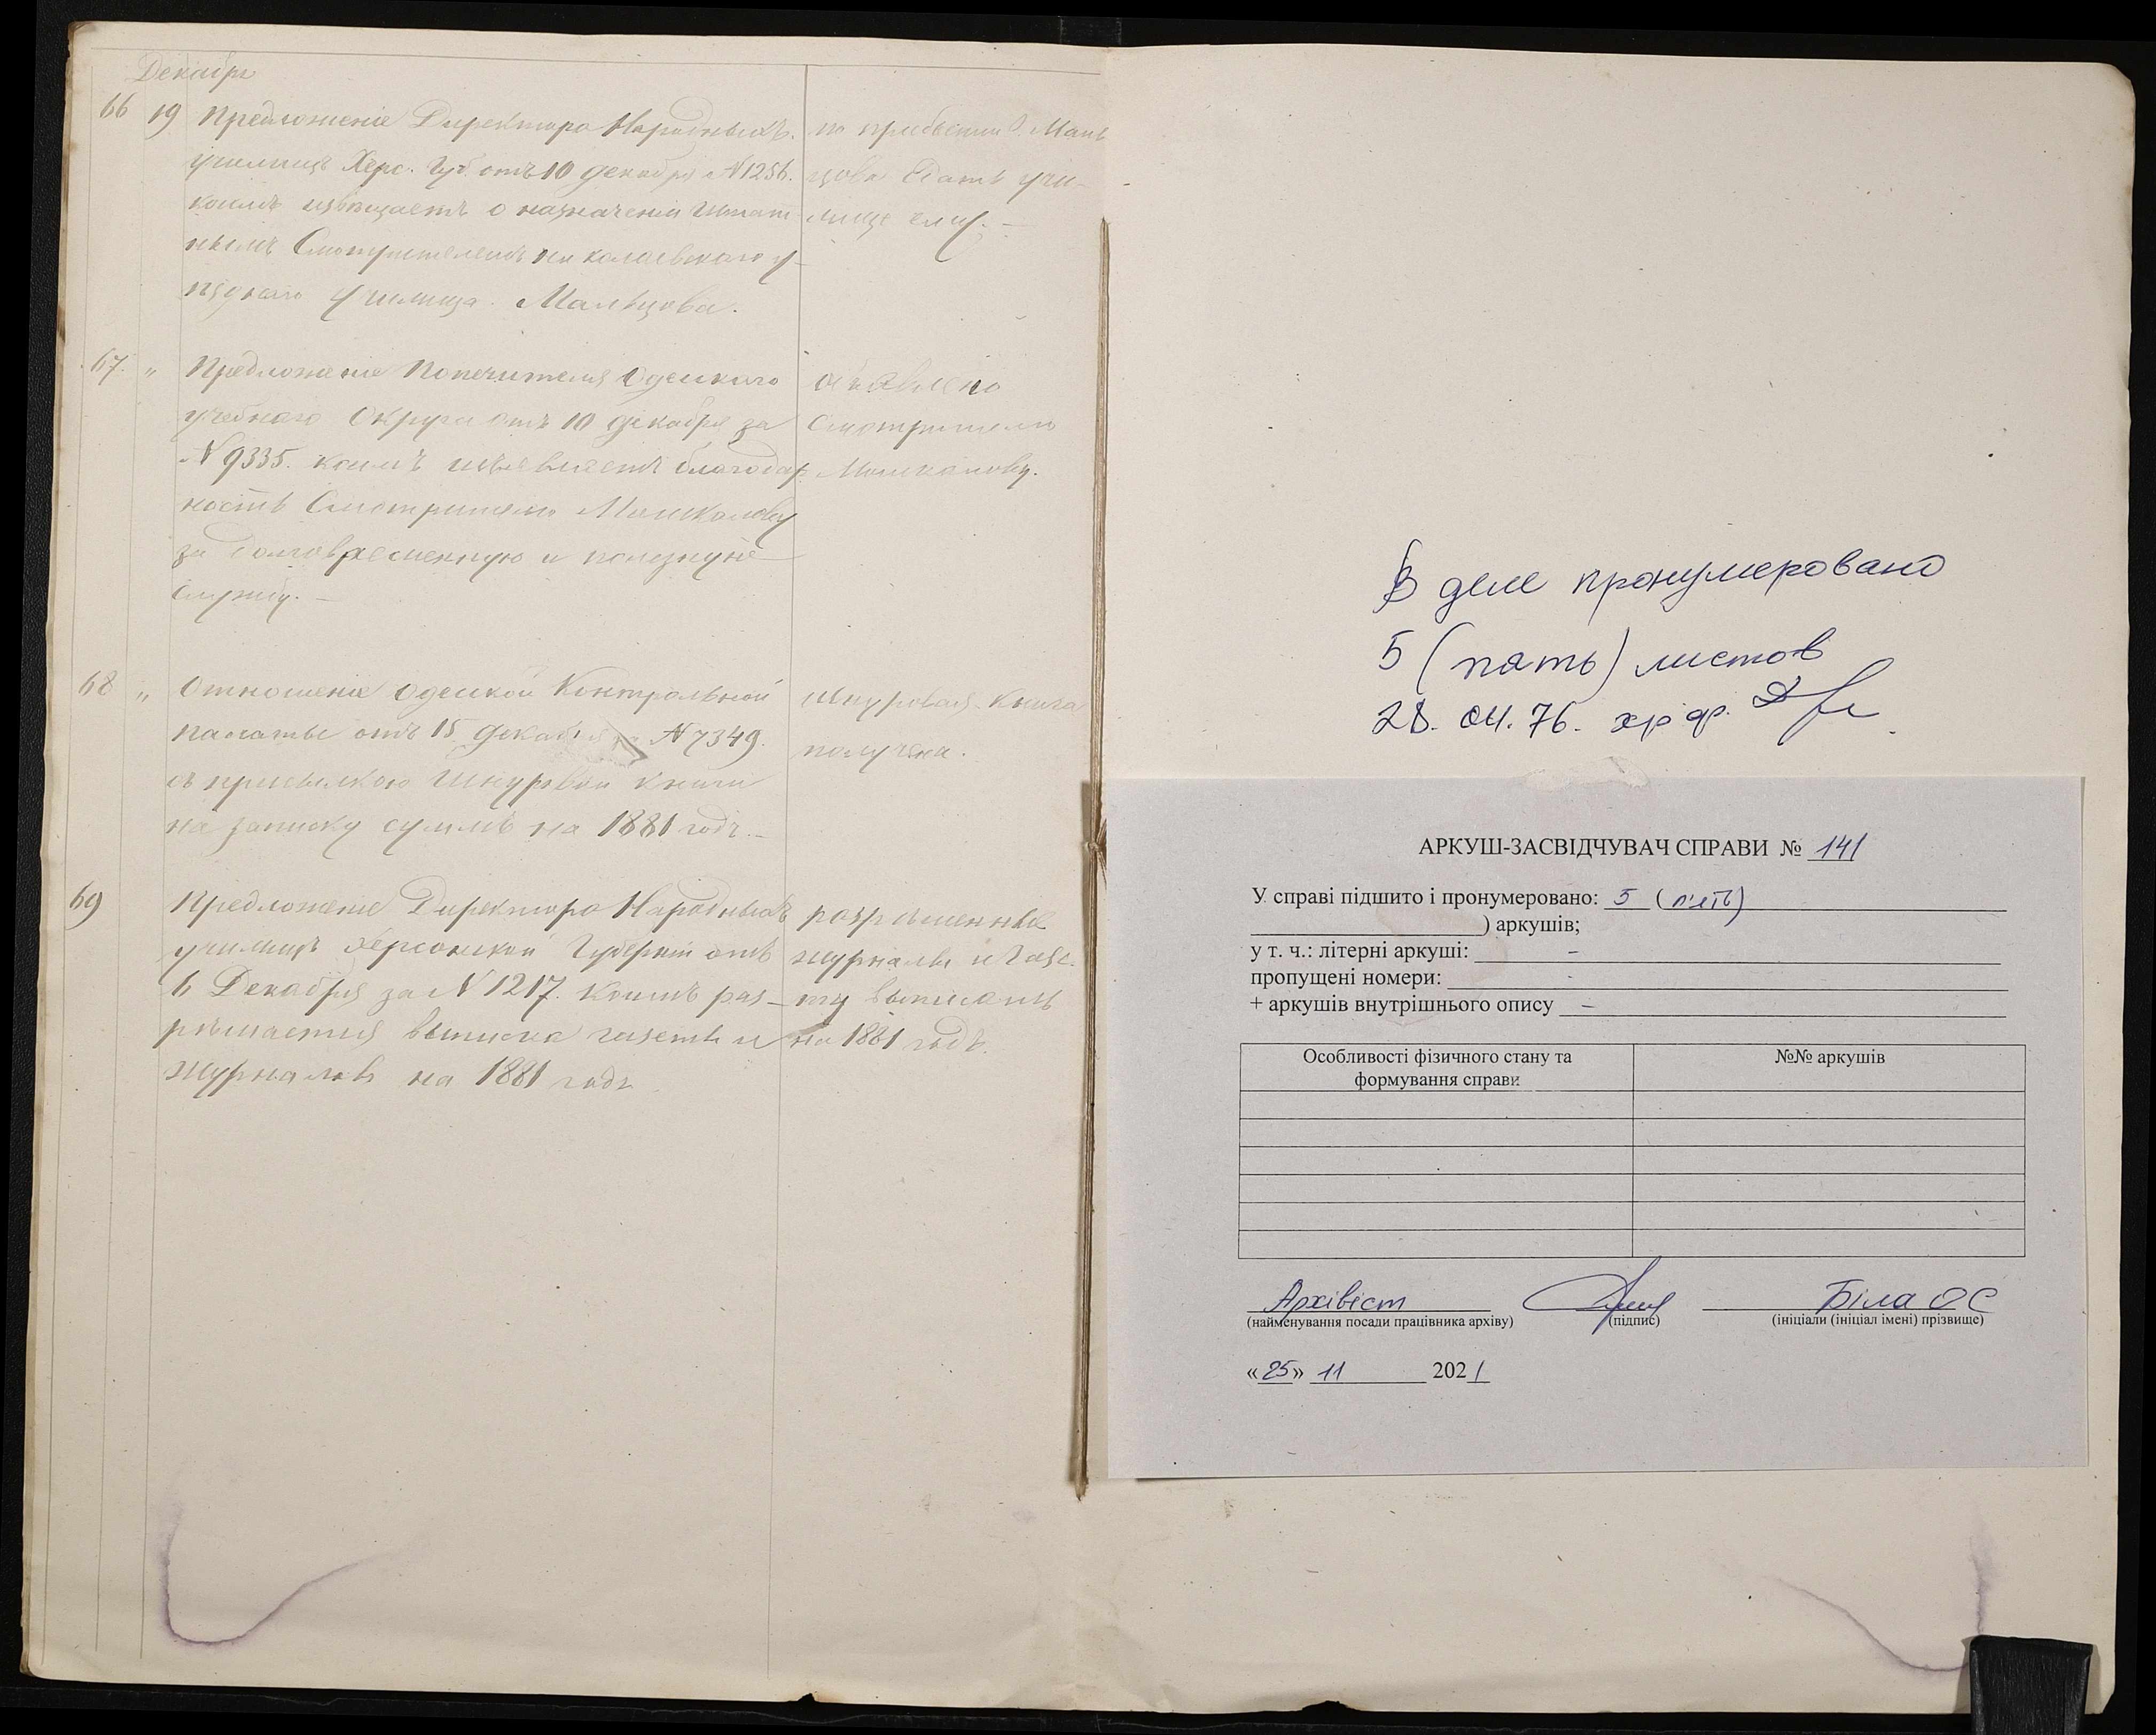 Декабрь
66 19 Предложеніе Директора Народныхъ
училищъ Херс. Губ. отъ 10 декабря №1256.
коимъ извѣщаетъ о назначеніи Штат
нымъ Смотрителемъ Николаевского у-
ѣзднаго училища Мальцова.
по прибытіи Г. Маль
цова Сдать учи-
лище ему. –
67. „ Предложеніе Попечителя Одескаго
учебнаго Округа отъ 10 декабря за
№9335. коимъ изъявляетъ благодар
ность Смотрителю
за долговременную и полезную
Службу. –
объявлено
Смотрителю
68 „ Отношеніе Одеской Контрольной
палаты отъ 15 декабря №7349.
съ присылкою Шнуровой книги
на записку суммъ на 1881 годъ. –
Шнуровая книга
получена.
69 Предложеніе Директора Народныхъ
училищъ Херсонской Губерніи отъ
6 Декабря за №1217. коимъ раз-
рѣшается выписка газеты и
журналовъ на 1881 годъ
разрѣшенные
журналы и Газе-
ту выписать
на 1881 годъ.
В деле пронумеровано
5 (пять) листов
28. 04. 76. хр ф.
АРКУШ-ЗАСВІДЧУВАЧ СПРАВИ № 141
У справі підшито і пронумеровано: 5 (п'ять)
) аркушів;
у т. ч.: літерні аркуші: –
пропущені номери: -
+ аркушів внутрішнього опису –
Особливості фізичного стану та
формування справи
№№ аркушів
Архівіст Біла ОС
(найменування посади працівника архіву) (підпис) (ініціали (ініціал імені) прізвище)
«25» 11 2021